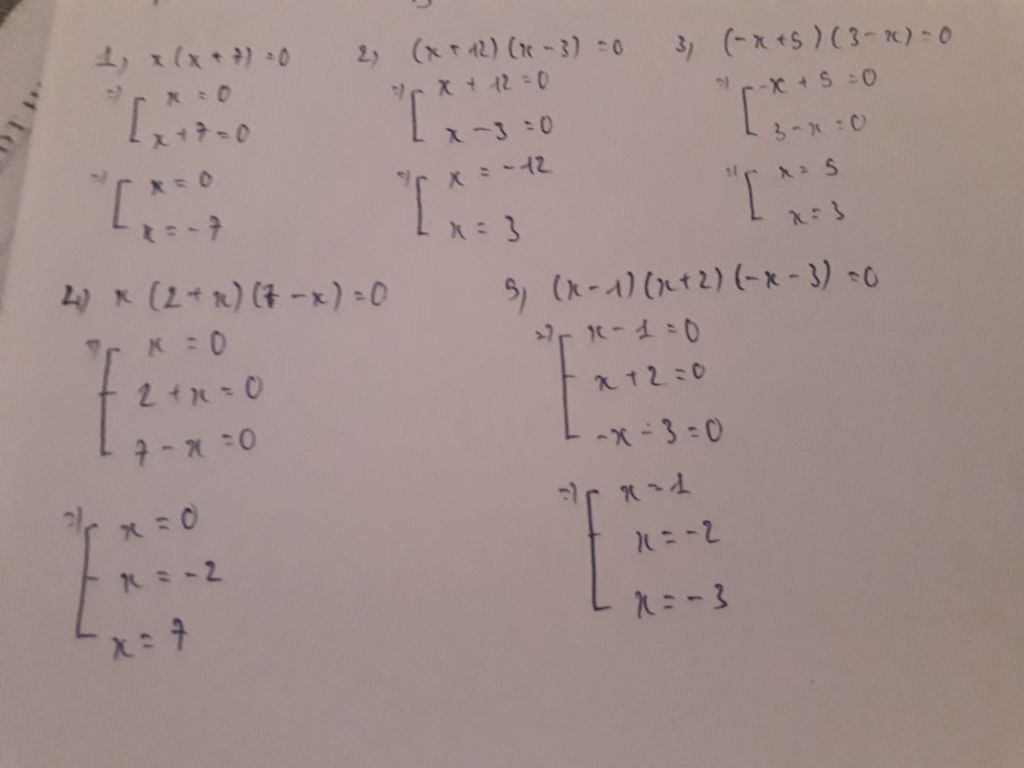 1, x(x+7)=0
=> [ x = 0
x+7=0
=> [ x = 0
x = -7
2, (x+12)(x-3)=0
=> [ x+12=0
x-3=0
=> [ x = -12
x = 3
3, (-x+5)(3-x)=0
=> [ -x+5=0
3-x=0
=> [ x = 5
x = 3
4) x(2+x)(7-x)=0
=> [ x = 0
2+x=0
7-x=0
=> [ x = 0
x = -2
x = 7
5, (x-1)(x+2)(-x-3)=0
=> [ x-1=0
x+2=0
-x-3=0
=> [ x = 1
x = -2
x = -3